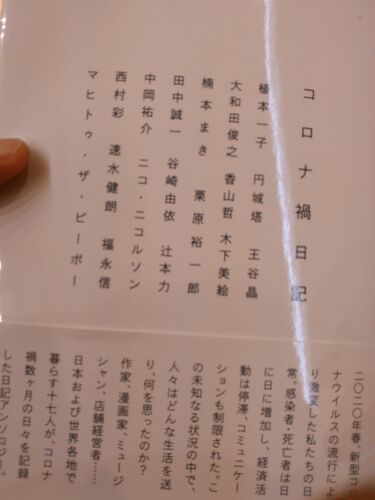 コロナ禍日記
植本一子 円城塔 王谷晶
大和田俊之 香山哲 木下美絵
楠本まき 栗原裕一郎
田中誠一 谷崎由依 辻本力
中岡祐介 ニコ・ニコルソン
西村彩 速水健朗 福永信
マヒトゥ・ザ・ピーポー
二〇二〇年春、新型コロ
ナウイルスの流行によ
り激変した私たちの日
常。感染者・死亡者は日
に日に増加し、経済活
動は停滞、コミュニケー
ションも制限された。こ
の未知なる状況の中で、
人々はどんな生活を送
り、何を思ったのか?
作家、漫画家、ミュージ
シャン、店舗経営者……
日本および世界各地で
暮らす十七人が、コロナ
禍数ヶ月の日々を記録
した日記アンソロジー。